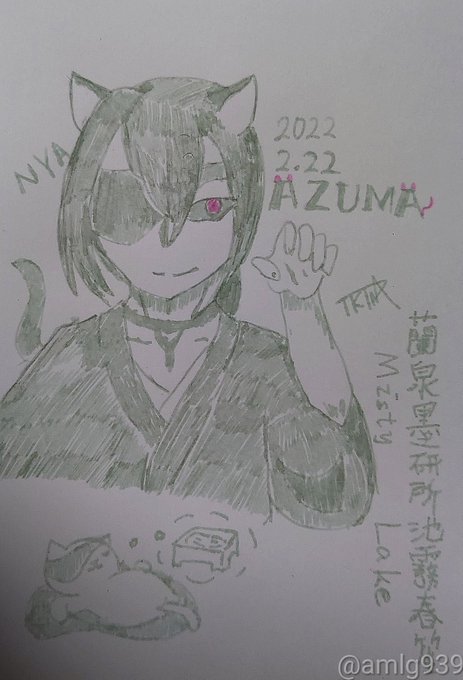 NYA
2022
2.22
ÄZUMÄ
Misty Lake
蘭泉墨研所池霧春
@amlg939